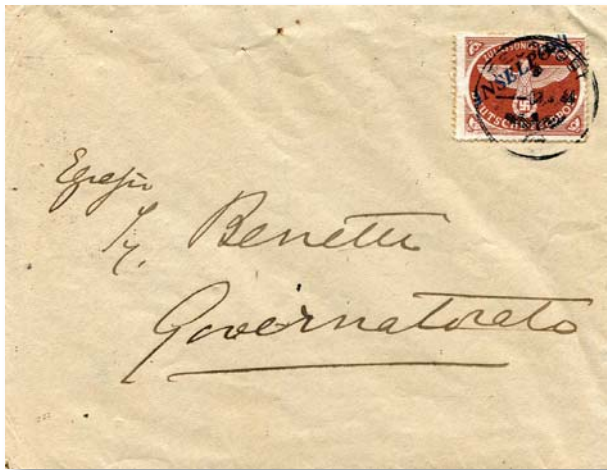 INSELPOST
ZULASSUNGS
DEUTSCHE FELDPOST
Egregio
Sr. Benetti
Governatorato